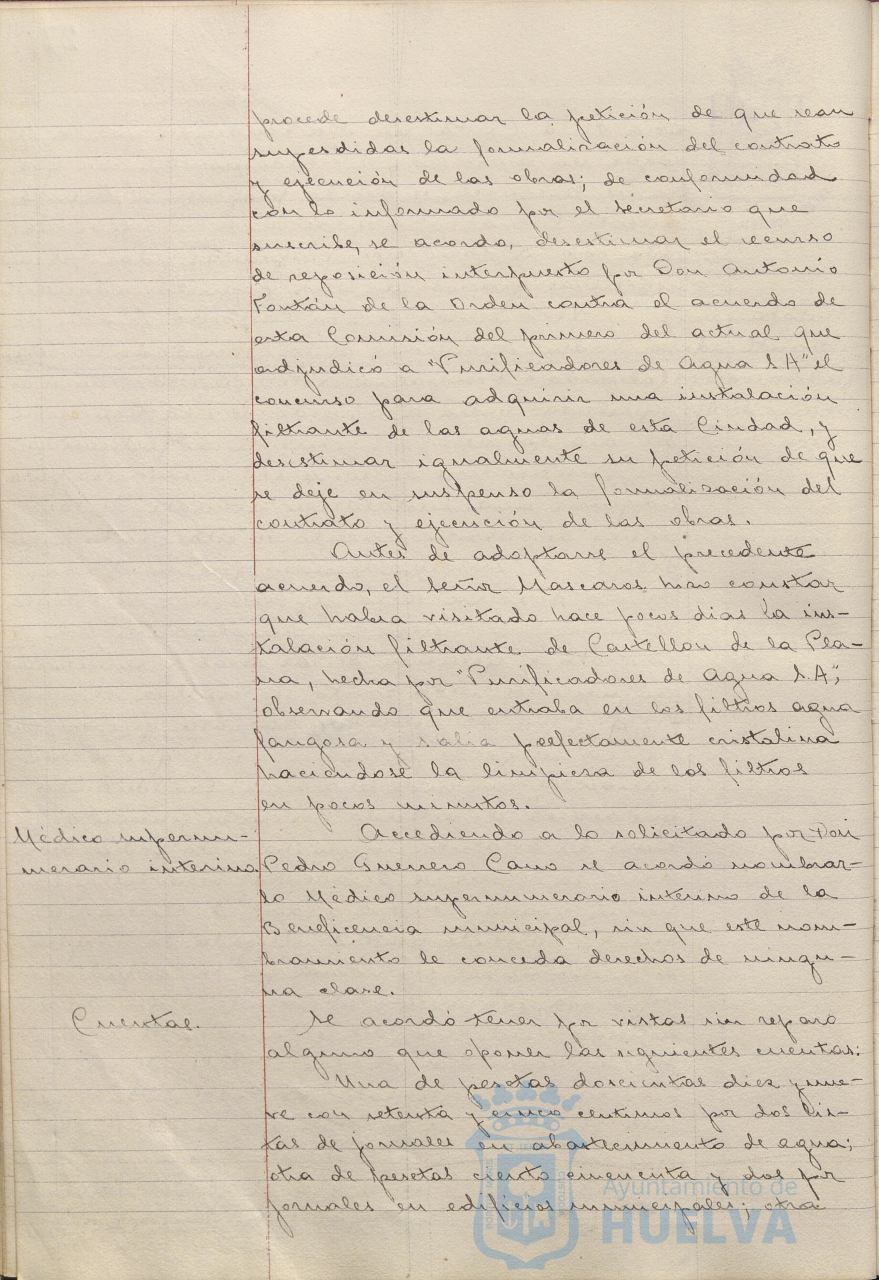 procede desestimar la petición de que sean
suspedidas la formalización del contrato
y ejecución de las obras; de conformidad
con lo informado por el Secretario que
suscribe, se acordo, desestimar el recurso
de reposición interpuesto por Don Antonio
Fontán de la Orden contra el acuerdo de
esta Comisión del primero del actual que
adjudicó a "Purificadores de Agua S A" el
concurso para adquirir una instalación
filtrante de las aguas de esta Ciudad, y
desestimar igualmente su petición de que
se deje en suspenso la formalización del
contrato y ejecución de las obras.
Antes de adoptarse el precedente
acuerdo, el Señor Mascaros hizo constar
que habia visitado hace pocos dias la ins-
talación filtrante de Castellon de la Pla-
na, hecha por "Purificadores de Agua S.A",
observando que entraba en los filtros agua
fangosa y salia perfectamente cristalina
haciendose la limpieza de los filtros
en pocos minutos.
Médico supernu-
merario interino.
Accediendo a lo solicitado por Don
Pedro Guerrero Cano se acordó nombrar-
lo Médico supernumerario interino de la
Beneficencia municipal, sin que este nom-
bramiento le conceda derechos de ningu-
na clase.
Cuentas.
Se acordó tener por vistas sin reparo
alguno que oponer las siguientes cuentas:
Una de pesetas doscientas diez y nue-
ve con setenta y cinco centimos por dos lis-
tas de jornales en abastecimiento de agua;
otra de pesetas ciento cincuenta y dos por
jornales en edificios municipales; otra
Ayuntamiento de
HUELVA